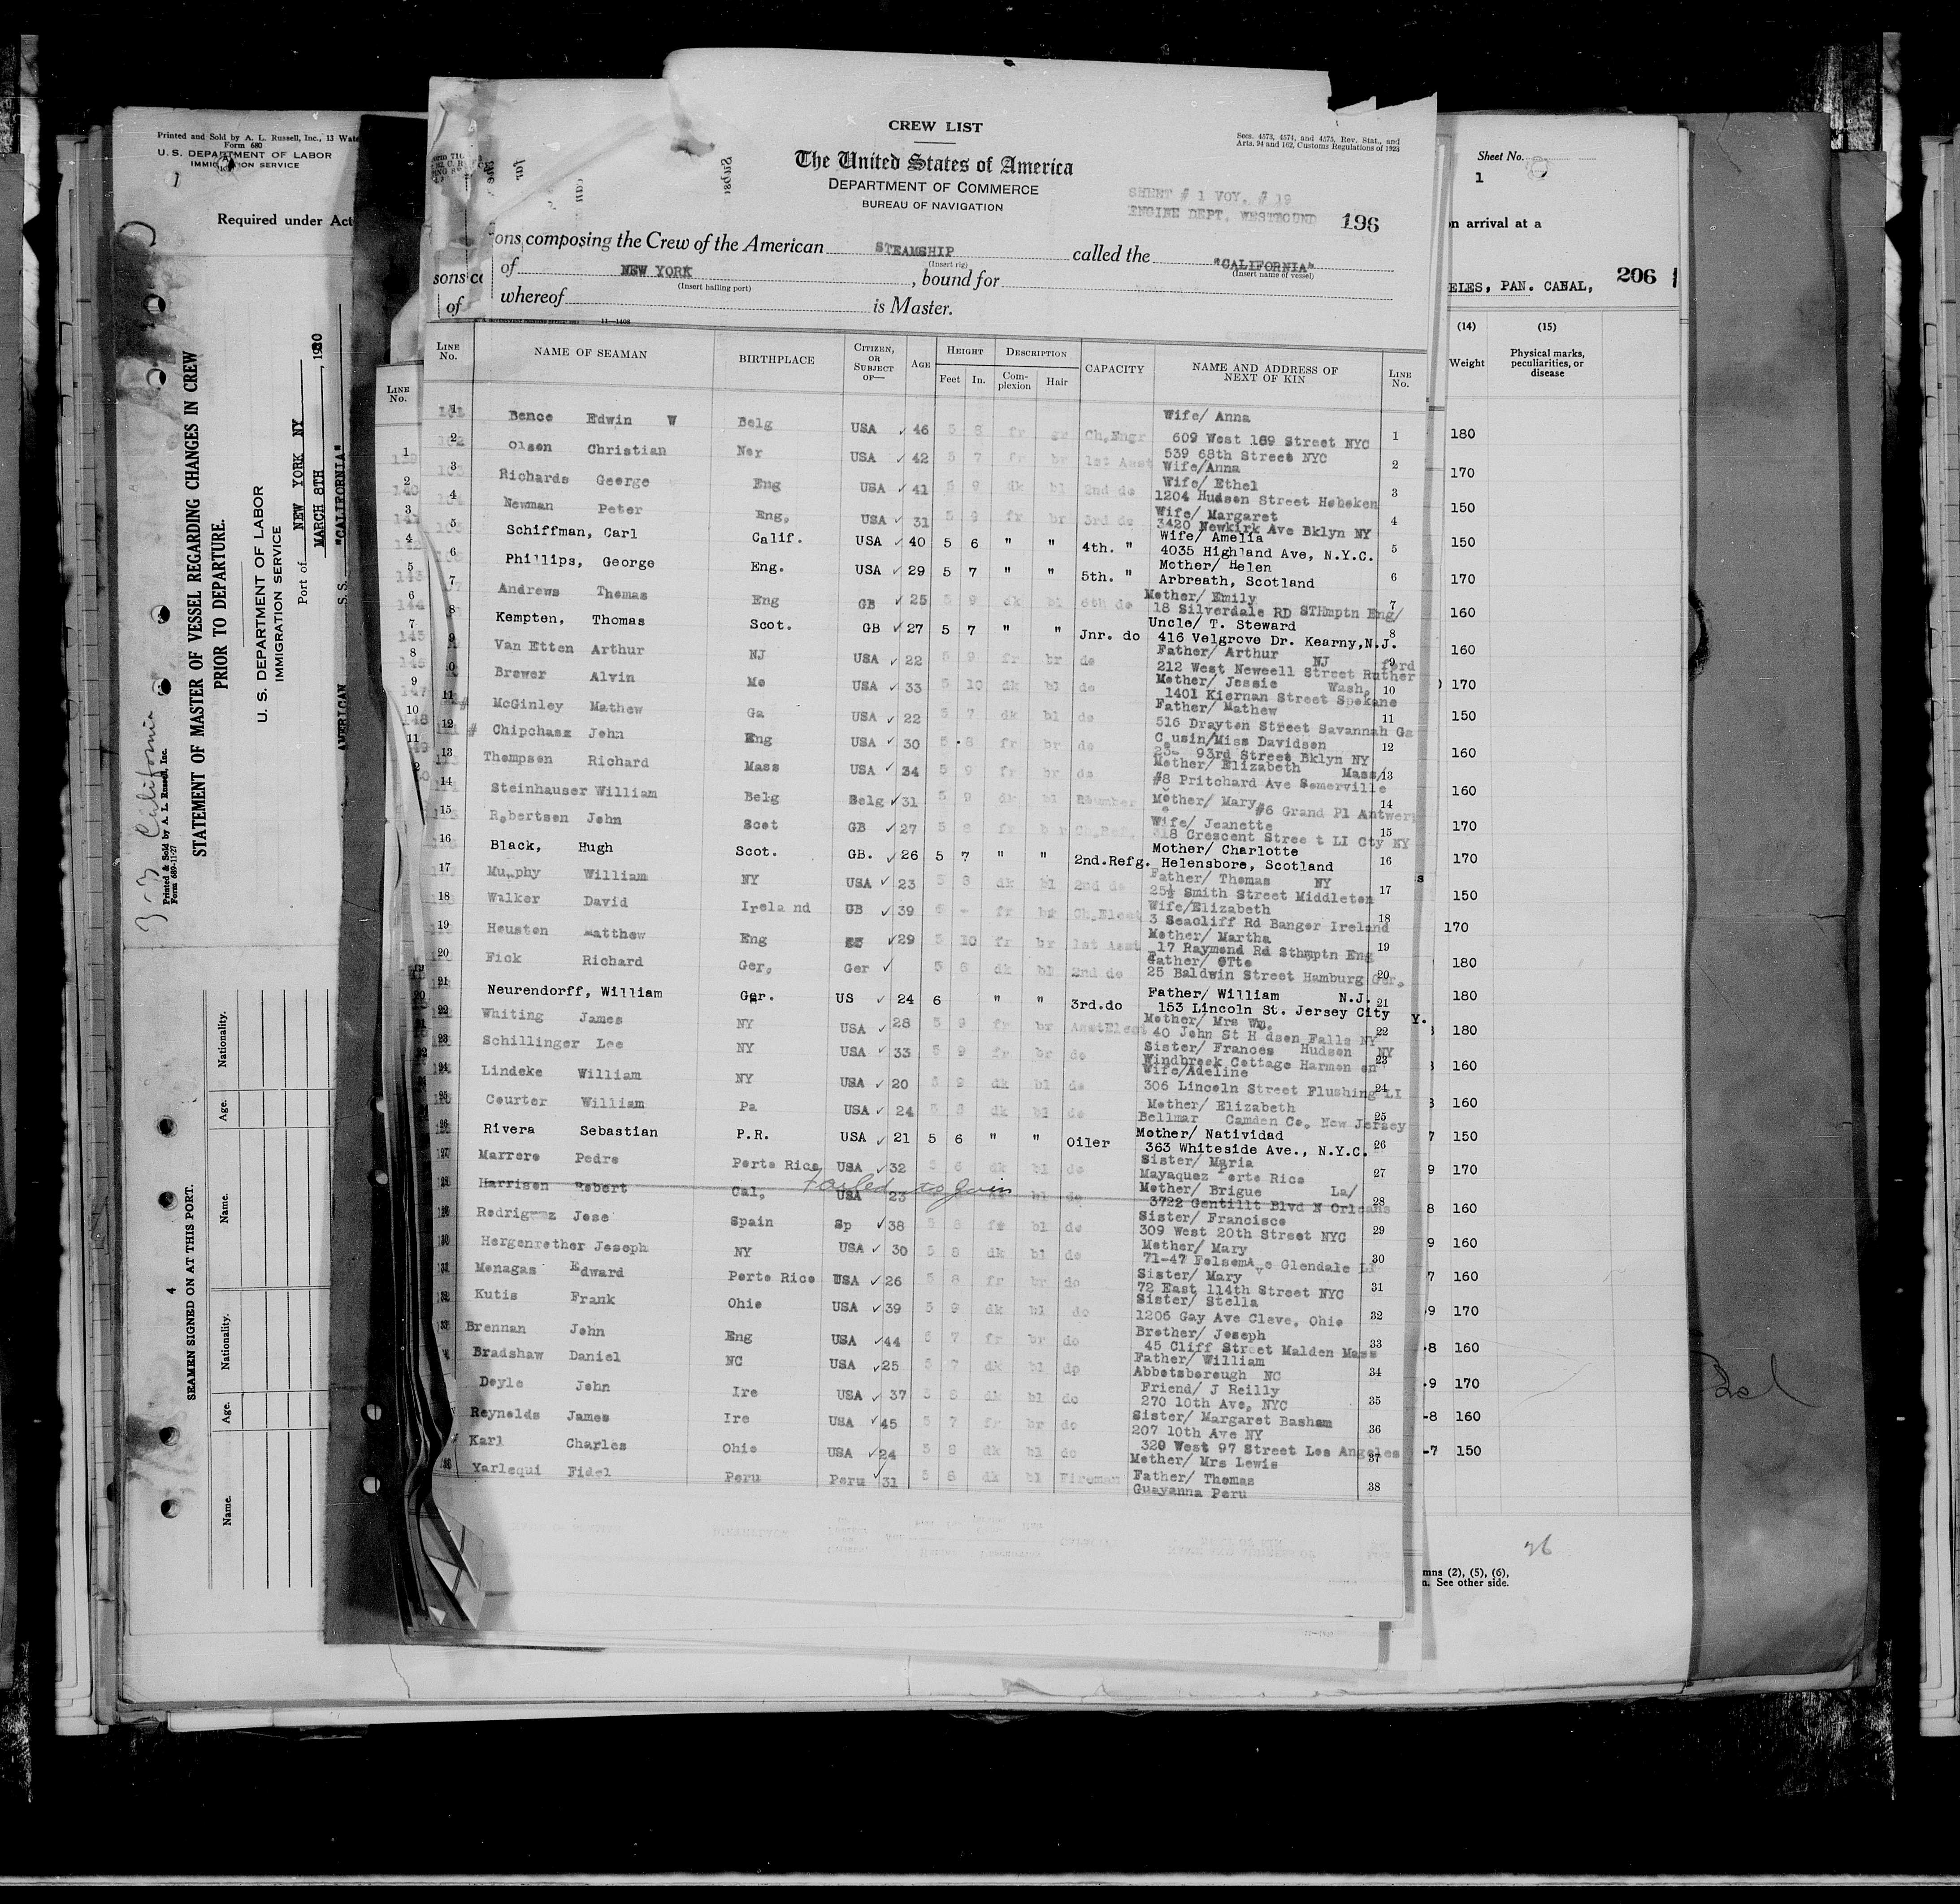 CREW LIST
Secs. 4573, 4574, and 4575, Rev. Stat., and
Arts. 94 and 162, Customs Regulations of 1923
The United States of America
DEPARTMENT OF COMMERCE
BUREAU OF NAVIGATION
SHEET # 1 VOY. # 19
ENGINE DEPT. WESTBOUND
196
ons composing the Crew of the American STEAMSHIP called the "CALIFORNIA"
(Insert rig) (Insert name of vessel)
of NEW YORK, bound for
(Insert hailing port)
whereof is Master.
11—1408
LINE No. NAME OF SEAMAN BIRTHPLACE CITIZEN, OR SUBJECT OF— AGE HEIGHT Feet In. DESCRIPTION Complexion Hair CAPACITY NAME AND ADDRESS OF NEXT OF KIN LINE No.
1 Bence Edwin W Belg USA 46 5 8 fr gr Ch.Engr Wife/ Anna
609 West 189 Street NYC 1
2 Olsen Christian Nor USA 42 5 7 fr br 1st Asst 539 68th Street NYC
Wife/Anna 2
3 Richards George Eng USA 41 5 9 dk bl 2nd do Wife/ Ethel
1204 Hudson Street Hoboken 3
4 Newman Peter Eng. USA 31 5 9 fr br 3rd do Wife/ Margaret
3420 Newkirk Ave Bklyn NY 4
5 Schiffman, Carl Calif. USA 40 5 6 " " 4th. " Wife/ Amelia
4035 Highland Ave, N.Y.C. 5
6 Phillips, George Eng. USA 29 5 7 " " 5th. " Mother/ Helen
Arbreath, Scotland 6
7 Andrews Thomas Eng GB 25 5 9 dk bl 6th do Mother/ Emily
18 Silverdale RD STHmptn Eng/ 7
8 Kempten, Thomas Scot. GB 27 5 7 " " Jnr. do Uncle/ T. Steward
416 Velgrove Dr. Kearny,N.J. 8
9 Van Etten Arthur NJ USA 22 5 9 fr br do Father/ Arthur NJ
212 West Neweell Street Ruther ford 9
10 Brewer Alvin Mo USA 33 5 10 dk bl do Mother/ Jessie Wash.
1401 Kiernan Street Spokane 10
11 McGinley Mathew Ga USA 22 5 7 dk bl do Father/ Mathew
516 Drayton Street Savannah Ga 11
12 # Chipchase John Eng USA 30 5 8 fr br do Cousin/Miss Davidson
93rd Street Bklyn NY 12
13 Thompson Richard Mass USA 34 5 9 fr br do Mother/ Elizabeth Mass/
#8 Pritchard Ave Somerville 13
14 Steinhauser William Belg Belg 31 5 9 dk bl Plumber Mother/ Mary
#6 Grand Pl Antwerp 14
15 Robertson John Scot GB 27 5 8 fr br Ch.Ref. Wife/ Jeanette
318 Crescent Street LI Cty NY 15
16 Black, Hugh Scot. GB. 26 5 7 " " 2nd.Refg. Mother/ Charlotte
Helensbore, Scotland 16
17 Murphy William NY USA 23 5 8 dk bl 2nd do Father/ Thomas NY
25½ Smith Street Middleton 17
18 Walker David Ireland GB 39 6 - fr br Ch.Elect Wife/Elizabeth
3 Seacliff Rd Bangor Ireland 18
19 Houston Matthew Eng 29 5 10 fr br 1st Asst Mother/ Martha
17 Raymond Rd Sthmptn Eng 19
20 Fick Richard Ger. Ger 5 8 dk bl 2nd do Father/ OTto
25 Baldwin Street Hamburg Ger. 20
21 Neurendorff, William Ger. US 24 6 " " 3rd.do Father/ William N.J.
153 Lincoln St. Jersey City 21
22 Whiting James NY USA 28 5 9 fr br AsstElect Mother/ Mrs Wm.
40 John St H dson Falls NY 22
23 Schillinger Lee NY USA 33 5 9 fr br do Sister/ Frances Hudson NY
Windbreek Cottage Harmon on 23
24 Lindeke William NY USA 20 5 9 dk bl do Wife/Adeline
306 Lincoln Street Flushing LI 24
25 Courter William Pa USA 24 5 8 dk bl do Mother/ Elizabeth
Bellmar Camden Co. New Jersey 25
26 Rivera Sebastian P.R. USA 21 5 6 " " Oiler Mother/ Natividad
363 Whiteside Ave., N.Y.C. 26
27 Marrero Pedro Porto Rico USA 32 5 6 dk bl do Sister/ Maria
Mayaquez Porto Rico 27
28 Harrison Robert Cal. USA 23 bl do Mother/ Brigue La/
3722 Gentillt Blvd N Orleans 28
failed to join
29 Rodriguez Jose Spain Sp 38 5 8 fr bl do Sister/ Francisco
309 West 20th Street NYC 29
30 Hergenrother Joseph NY USA 30 5 8 dk bl do Mother/ Mary
71-47 Folsom Ave Glendale LI 30
31 Menagas Edward Porto Rico USA 26 5 8 fr br do Sister/ Mary
72 East 114th Street NYC 31
32 Kutis Frank Ohio USA 39 5 9 dk bl do Sister/ Stella
1206 Gay Ave Cleve. Ohio 32
33 Brennan John Eng USA 44 5 7 fr br do Brother/ Joseph
45 Cliff Street Malden Mass 33
Bradshaw Daniel NC USA 25 5 7 dk bl do Father/ William
Abbotsborough NC 34
Doyle John Ire USA 37 5 8 dk bl do Friend/ J Reilly
270 10th Ave. NYC 35
Reynolds James Ire USA 45 5 7 fr br do Sister/ Margaret Basham
207 10th Ave NY 36
Karl Charles Ohio USA 24 5 8 dk bl do 320 West 97 Street Los Angeles
Mother/ Mrs Lewis 37
38 Yarlequi Fidel Peru Peru 31 5 8 dk bl Fireman Father/ Thomas
Guayanna Peru 38
Printed and Sold by A. L. Russell, Inc., 13 Wate
Form 680
U. S. DEPARTMENT OF LABOR
IMMIGRATION SERVICE
Required under Act
3-3 California
Printed & Sold by A. L. Russell, Inc.
Form 689-11-27
STATEMENT OF MASTER OF VESSEL REGARDING CHANGES IN CREW
PRIOR TO DEPARTURE.
U. S. DEPARTMENT OF LABOR
IMMIGRATION SERVICE
Port of NEW YORK NY
MARCH 8TH, 1930
AMERICAN S. S. "CALIFORNIA"
4
SEAMEN SIGNED ON AT THIS PORT.
Name. Age. Nationality. Name. Age. Nationality.
Sheet No.
1
on arrival at a
ELES, PAN. CANAL,
206
(14) (15)
Weight Physical marks, peculiarities, or disease
180
170
150
150
170
160
160
170
150
160
160
170
170
150
170
180
180
180
160
160
150
170
160
160
160
170
160
170
160
150
26
mns (2), (5), (6),
n. See other side.